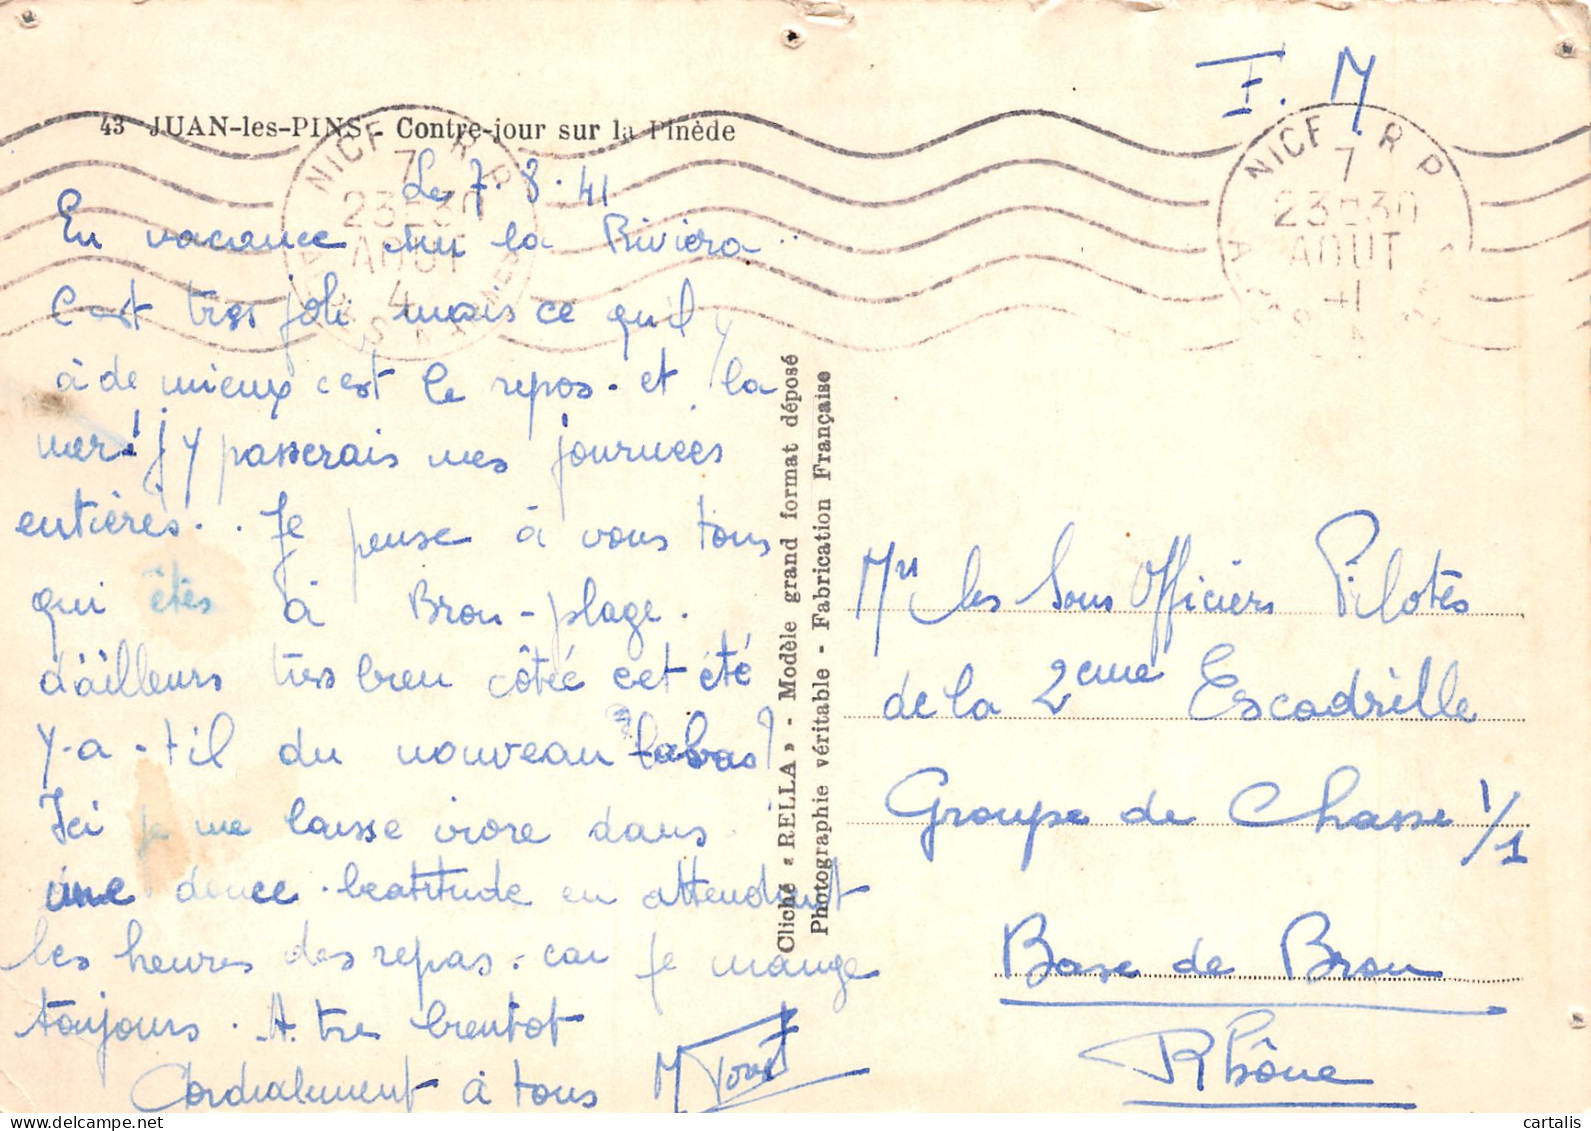 43 JUAN-les-PINS - Contre-jour sur la Pinède
F. M
NICE R.P
7
23-30
AOUT
41
NICE R.P
7
23-30
AOUT
41
Le 7. 8. 41
En vacance sur la Riviera..
C'est tres joli mais ce qu'il y
à de mieux c'est le repos. et la
mer! j'y passerais mes journées
entières.. Je pense à vous tous
qui êtes à Bron-plage.
d'ailleurs très bien côtée cet été
Y-a-t-il du nouveau labas?
Ici je me laisse vivre dans
une douce beatitude en attendant
les heures des repas. car je mange
toujours. A tres bientot
Cordialement à tous
Cliché « RELLA » - Modèle grand format déposé
Photographie véritable - Fabrication Française
Mrs les Sous Officiers Pilotes
de la 2eme Escadrille
Groupe de Chasse 1/1
Base de Bron
Rhône
cartalis